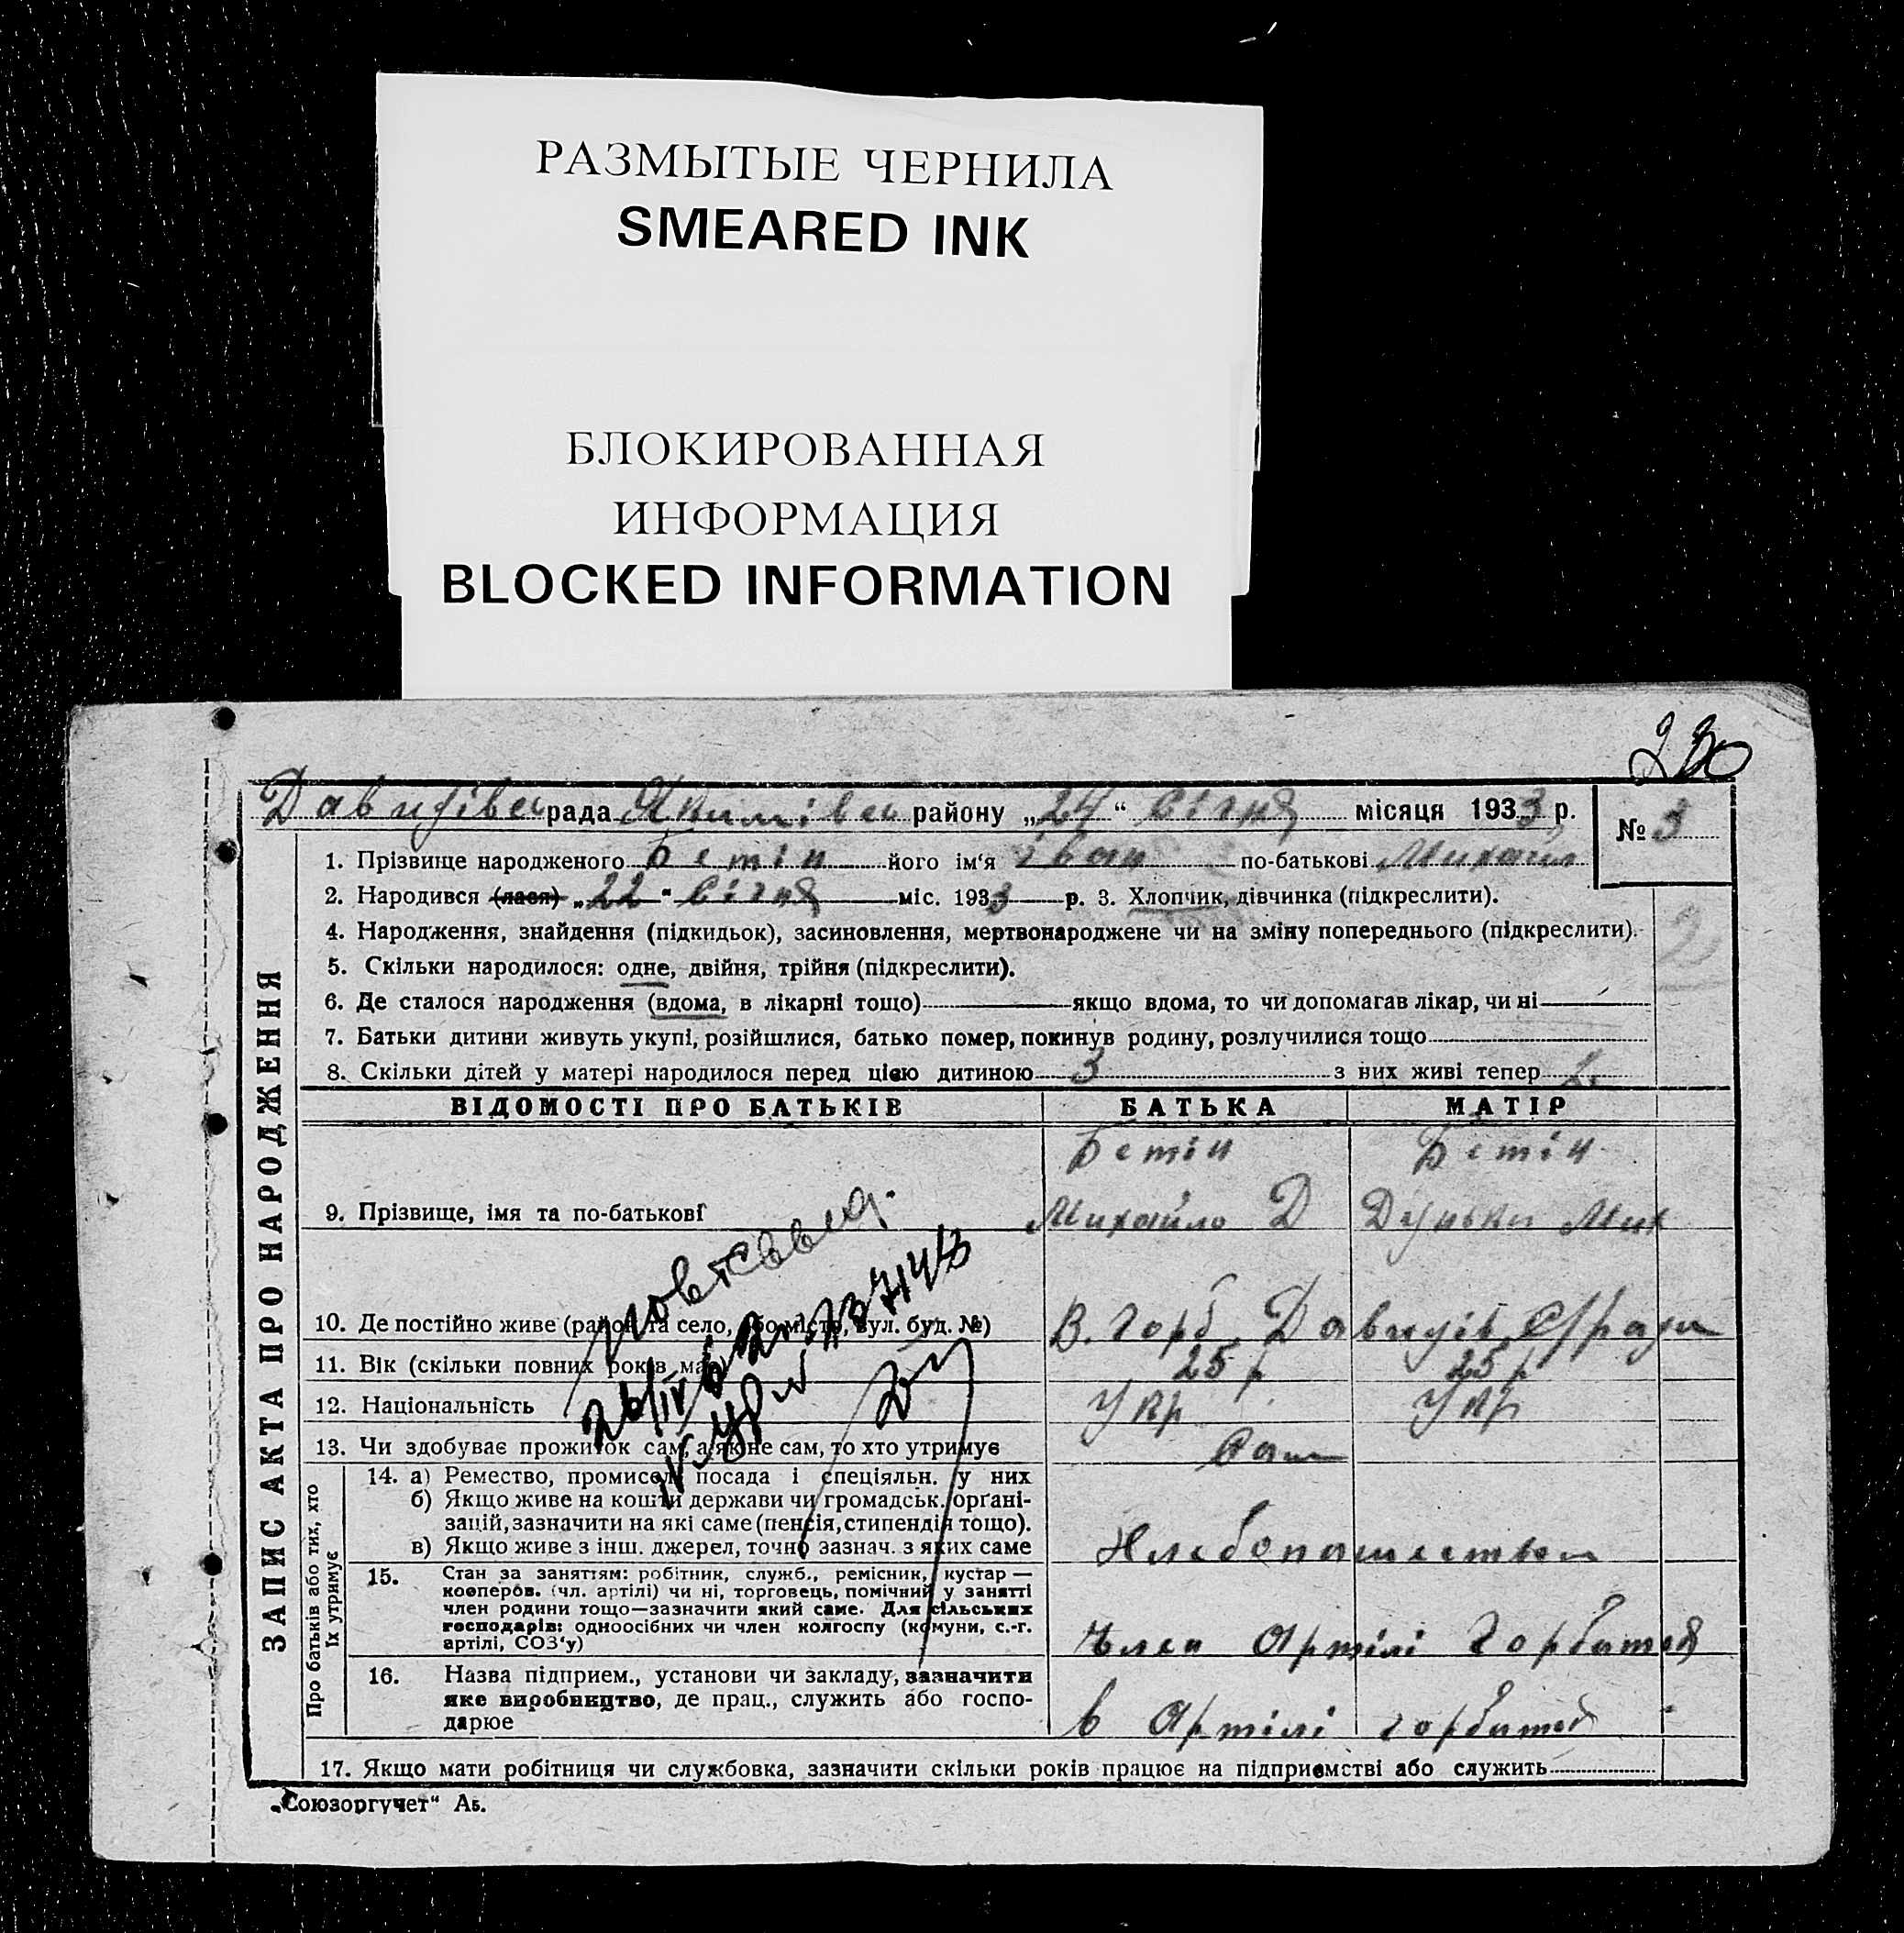 РАЗМЫТЫЕ ЧЕРНИЛА
SMEARED INK
БЛОКИРОВАННАЯ
ИНФОРМАЦИЯ
BLOCKED INFORMATION
230
Давидівсь рада Якимівсь району „24“ Січня місяця 1933 р.
№ 3
1. Прізвище народженого Бетін його ім‘я Іван по-батькові Михайл
2. Народився (лася) „22“ Січня міс. 1933 р. 3. Хлопчик, дівчинка (підкреслити).
4. Народження, знайдення (підкидьок), засиновлення, мертвонароджене чи на зміну попереднього (підкреслити).
2
5. Скільки народилося: одне, двійня, трійня (підкреслити).
6. Де сталося народження (вдома, в лікарні тощо) якщо вдома, то чи допомагав лікар, чи ні
7. Батьки дитини живуть укупі, розійшлися, батько помер, покинув родину, розлучилися тощо
8. Скільки дітей у матері народилося перед цією дитиною 3 з них живі тепер
ЗАПИС АКТА ПРО НАРОДЖЕННЯ
ВІДОМОСТІ ПРО БАТЬКІВ БАТЬКА МАТІР
Бетін Бетін
9. Прізвище, імя та по-батькові Михайло Д Дунька Мих
10. Де постійно живе (район та село, або місто, вул. буд. №) В. Горб Давидів С/ради
11. Вік (скільки повних років має) 25 р 25 р
12. Національність Укр Укр
13. Чи здобуває прожиток сам, а як не сам, то хто утримує Сам
Про батьків або тих, хто
їх утримує
14. а) Ремество, промисел, посада і спеціяльн. у них
б) Якщо живе на кошти держави чи громадськ. орґані-
зацій, зазначити на які саме (пенсія, стипендія тощо).
в) Якщо живе з інш. джерел, точно зазнач. з яких саме Хлебопашеством
15. Стан за заняттям: робітник, служб., ремісник, кустар —
кооперов. (чл. артілі) чи ні, торговець, помічний у занятті
член родини тощо—зазначити який саме. Для сільських
господарів: одноосібних чи член колгоспу (комуни, с.-г.
артілі, СОЗ‘у) Член Артілі Горбатов
16. Назва підприєм., установи чи закладу, зазначити
яке виробництво, де прац., служить або госпо-
дарює в Артілі Горбатов
17. Якщо мати робітниця чи службовка, зазначити скільки років працює на підприємстві або служить
„Союзоргучет“ Аб.